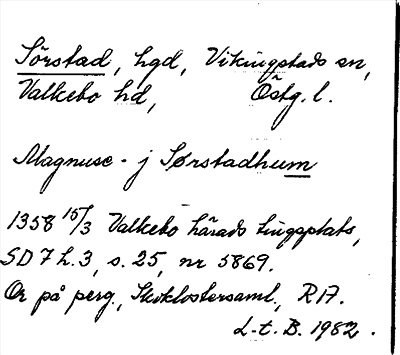 Sörstad, hgd, Vikingstads sn,
Valkebo hd, Östg. l.
Magnusc - j Sørstadhum
1358 15/3 Valkebo härads tingsplats,
SD 7 h. 3, s. 25, nr 5869.
Or på perg., Skoklostersaml., RA.
L-t. B. 1982.